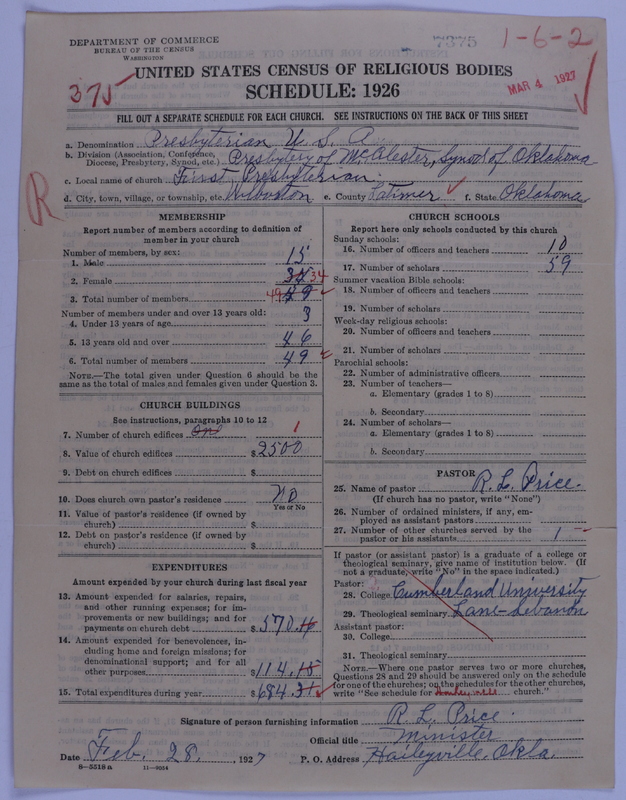 DEPARTMENT OF COMMERCE
BUREAU OF THE CENSUS
WASHINGTON
7375
1-6-2
375
MAR 4 1927
UNITED STATES CENSUS OF RELIGIOUS BODIES
SCHEDULE: 1926
FILL OUT A SEPARATE SCHEDULE FOR EACH CHURCH. SEE INSTRUCTIONS ON THE BACK OF THIS SHEET
a. Denomination Presbyterian U. S. A.
b. Division (Association, Conference, Diocese, Presbytery, Synod, etc.) Presbytery of McAlester, Synod of Oklahoma
c. Local name of church First Presbyterian.
R
d. City, town, village, or township, etc. Wilburton. e. County Latimer f. State Oklahoma
MEMBERSHIP
Report number of members according to definition of
member in your church
Number of members, by sex:
1. Male 15
2. Female 34 34
3. Total number of members 49 49
Number of members under and over 13 years old:
4. Under 13 years of age 3
5. 13 years old and over 46
6. Total number of members 49
NOTE.—The total given under Question 6 should be the
same as the total of males and females given under Question 3.
CHURCH BUILDINGS
See instructions, paragraphs 10 to 12
7. Number of church edifices One 1
8. Value of church edifices $ 2500
9. Debt on church edifices $
10. Does church own pastor's residence No
Yes or No
11. Value of pastor's residence (if owned by
church) $
12. Debt on pastor's residence (if owned by
church) $
EXPENDITURES
Amount expended by your church during last fiscal year
13. Amount expended for salaries, repairs,
and other running expenses; for im-
provements or new buildings; and for
payments on church debt $ 570.16
14. Amount expended for benevolences, in-
cluding home and foreign missions; for
denominational support; and for all
other purposes $ 114.15
15. Total expenditures during year $ 684.31
CHURCH SCHOOLS
Report here only schools conducted by this church
Sunday schools:
16. Number of officers and teachers 10
17. Number of scholars 59
Summer vacation Bible schools:
18. Number of officers and teachers
19. Number of scholars
Week-day religious schools:
20. Number of officers and teachers
21. Number of scholars
Parochial schools:
22. Number of administrative officers
23. Number of teachers—
a. Elementary (grades 1 to 8)
b. Secondary
24. Number of scholars—
a. Elementary (grades 1 to 8)
b. Secondary
PASTOR
25. Name of pastor R. L. Price.
(If church has no pastor, write "None")
26. Number of ordained ministers, if any, em-
ployed as assistant pastors
27. Number of other churches served by the
pastor or his assistants 1
If pastor (or assistant pastor) is a graduate of a college or
theological seminary, give name of institution below. (If
not a graduate, write "No" in the space indicated.)
Pastor:
28. College Cumberland University
29. Theological seminary Lane-Lebanon
Assistant pastor:
30. College
31. Theological seminary
NOTE.—Where one pastor serves two or more churches,
Questions 28 and 29 should be answered only on the schedule
for one of the churches; on the schedules for the other churches,
write "See schedule for church."
Signature of person furnishing information R. L. Price.
Official title Minister
Date Feb. 28, 1927 P. O. Address Haileyville, Okla.
8—5518 a 11—9034